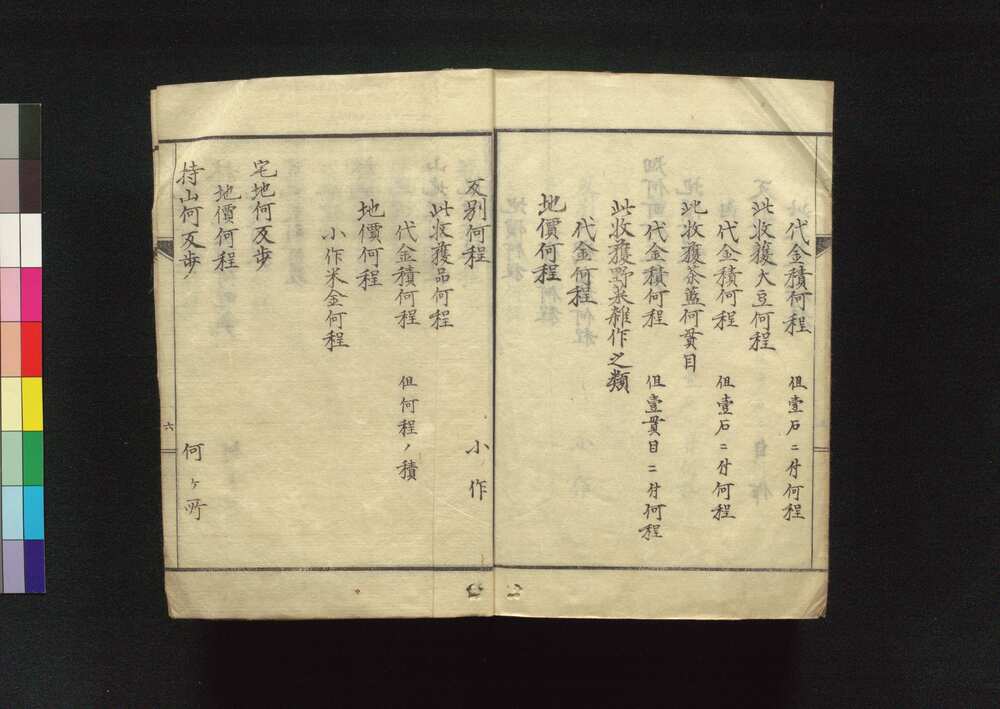 代金積何程 但壹石ニ付何程
此收獲大豆何程
代金積何程 但壹石ニ付何程
此收獲茶藍何貫目
代金積何程 但壹貫目ニ付何程
此收獲野菜雜作之類
代金何程
地價何程
反別何程 小作
此收獲品何程
代金積何程 但何程ノ積
地價何程
小作米金何程
宅地何反歩
地價何程
持山何反歩 何ヶ所
六